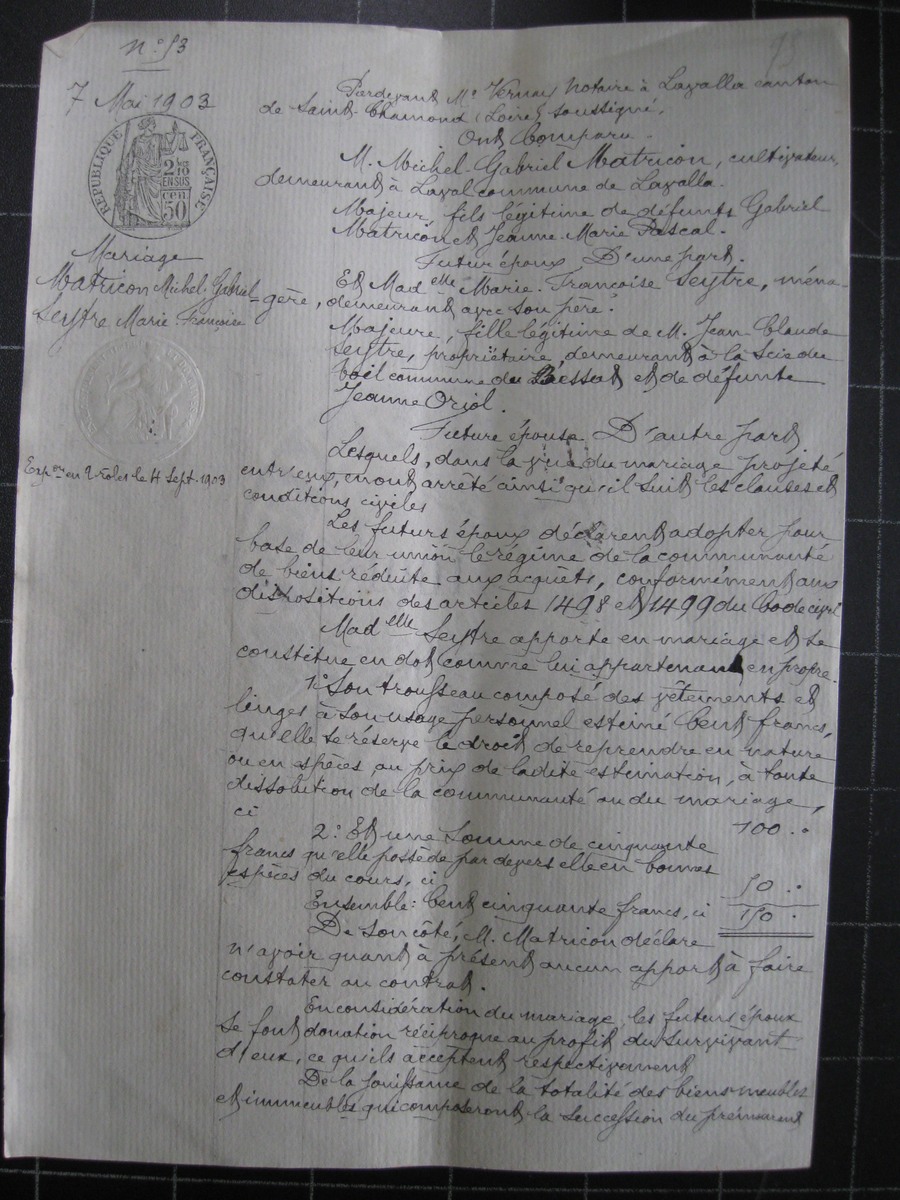 n° 53
7 Mai 1903
RÉPUBLIQUE FRANÇAISE
2/10 EN SUS
50 cen
Mariage
Matricon Michel-Gabriel
Seytre Marie-Françoise
Expon en 2 roles le 4 Sept. 1903
Pardevant Me Vernay Notaire à Lavalla canton
de Saint-Chamond (Loire) soussigné.
Ont Comparu.
M. Michel-Gabriel Matricon, cultivateur,
demeurant à Laval commune de Lavalla.
Majeur, fils légitime de défunts Gabriel
Matricon et Jeanne-Marie Pascal.
Futur époux D'une part.
Et Madelle Marie-Françoise Seytre, ména-
-gère, demeurant avec son père.
Majeure, fille légitime de M. Jean Claude
Seytre, propriétaire, demeurant à la Scie du
commune du Bessat et de défunte
Jeanne Oriol.
Future épouse D'autre part
Lesquels, dans la vue du mariage projeté
entr'eux, ont arrêté ainsi qu'il suit les clauses et
conditions civiles
Les futurs époux déclarent adopter pour
base de leur union le régime de la communauté
de biens réduite aux acquêts, conformément aux
dispositions des articles 1498 et 1499 du Code civil
Madelle Seytre apporte en mariage et se
constitue en dot comme lui appartenant en propre.
1° Son trousseau composé des vêtements et
linges à son usage personnel estimé Cent francs,
qu'elle se réserve le droit de reprendre en nature
ou en espèces au prix de ladite estimation, à toute
dissolution de la communauté ou du mariage,
ci 100..
2° Et une somme de cinquante
francs qu'elle possède par devers elle en bonnes
espèces du cours, ci 50..
Ensemble: Cent cinquante francs, ci 150.
De son côté, M. Matricon déclare
n'avoir quant à présent aucun apport à faire
constater au contrat.
En considération du mariage, les futurs époux
se font donation réciproque au profit du survivant
d'eux, ce qu'ils acceptent respectivement
De la jouissance de la totalité des biens meubles
et immeubles qui composeront la succession du prémourant